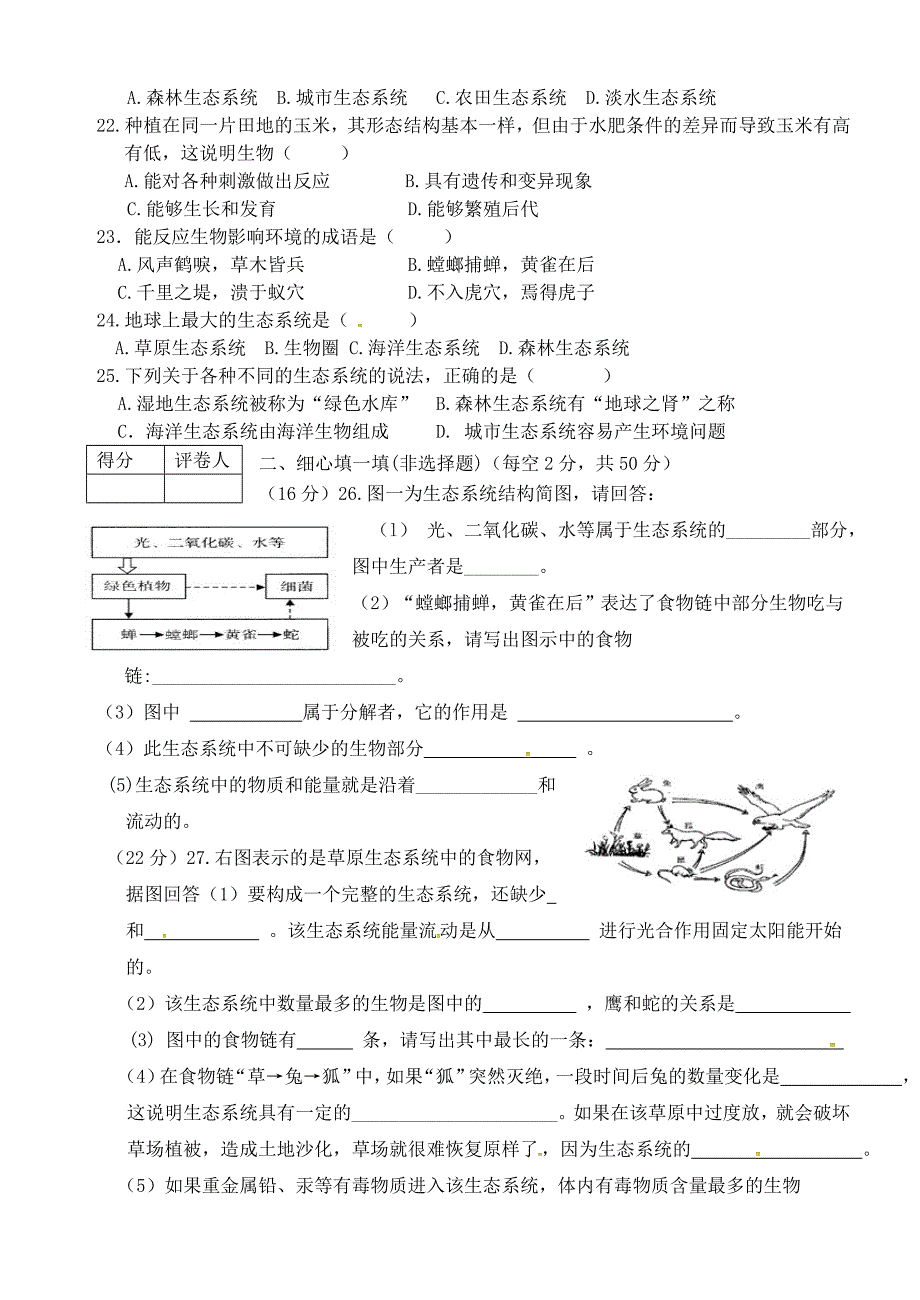 A.森林生态系统 B.城市生态系统 C.农田生态系统 D.淡水生态系统
22.种植在同一片田地的玉米，其形态结构基本一样，但由于水肥条件的差异而导致玉米有高
有低，这说明生物（ ）
A.能对各种刺激做出反应 B.具有遗传和变异现象
C.能够生长和发育 D.能够繁殖后代
23．能反应生物影响环境的成语是（ ）
A.风声鹤唳，草木皆兵 B.螳螂捕蝉，黄雀在后
C.千里之堤，溃于蚁穴 D.不入虎穴，焉得虎子
24.地球上最大的生态系统是（ ）
A.草原生态系统 B.生物圈 C.海洋生态系统 D.森林生态系统
25.下列关于各种不同的生态系统的说法，正确的是（ ）
A.湿地生态系统被称为“绿色水库” B.森林生态系统有“地球之肾”之称
C．海洋生态系统由海洋生物组成 D. 城市生态系统容易产生环境问题
得分 评卷人
二、细心填一填(非选择题)（每空2分，共50分）
（16分）26.图一为生态系统结构简图，请回答：
光、二氧化碳、水等
绿色植物 细菌
蝉 螳螂 黄雀 蛇
（1） 光、二氧化碳、水等属于生态系统的_________部分，
图中生产者是________。
（2）“螳螂捕蝉，黄雀在后”表达了食物链中部分生物吃与
被吃的关系，请写出图示中的食物
链:__________________________。
（3）图中 ____________属于分解者，它的作用是 _______________________。
（4）此生态系统中不可缺少的生物部分________________ 。
(5)生态系统中的物质和能量就是沿着_____________和
流动的。
兔 鹰
草 狐
鼠 蛇
（22分）27.右图表示的是草原生态系统中的食物网，
据图回答（1）要构成一个完整的生态系统，还缺少_
和____________ 。该生态系统能量流动是从__________ 进行光合作用固定太阳能开始
的。
（2）该生态系统中数量最多的生物是图中的__________ ，鹰和蛇的关系是____________
(3) 图中的食物链有______ 条，请写出其中最长的一条：_________________________
（4）在食物链“草→兔→狐”中，如果“狐”突然灭绝，一段时间后兔的数量变化是_____________，
这说明生态系统具有一定的______________________。如果在该草原中过度放，就会破坏
草场植被，造成土地沙化，草场就很难恢复原样了，因为生态系统的__________________。
（5）如果重金属铅、汞等有毒物质进入该生态系统，体内有毒物质含量最多的生物